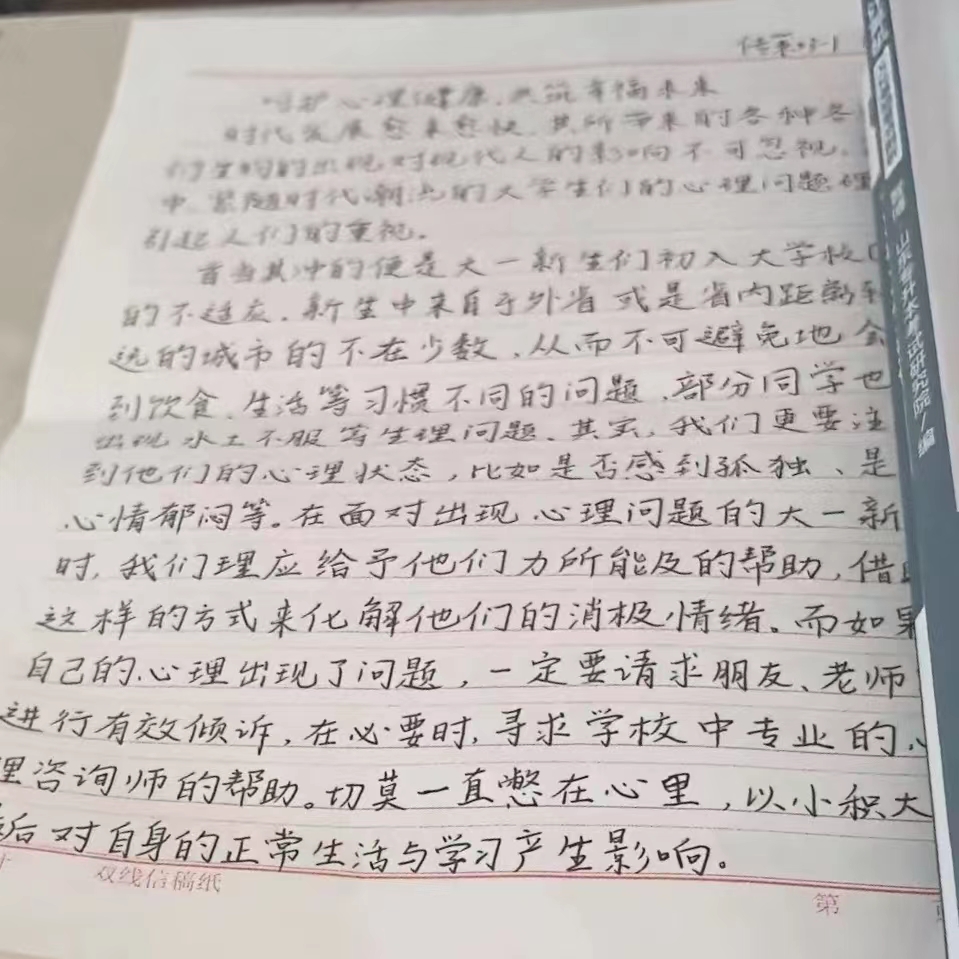 呵护心理健康，共筑幸福未来
时代发展愈来愈快，其所带来的各种各
衍生物的出现对现代人的影响不可忽视。
中，紧随时代潮流的大学生们的心理问题理
引起人们的重视。
首当其冲的便是大一新生们初入大学校
的不适应。新生中来自于外省或是省内距离
远的城市的不在少数，从而不可避免地会
到饮食、生活等习惯不同的问题，部分同学也
出现水土不服等生理问题。其实，我们更要注
到他们的心理状态，比如是否感到孤独、是
心情郁闷等。在面对出现心理问题的大一新
时，我们理应给予他们力所能及的帮助，借
这样的方式来化解他们的消极情绪。而如果
自己的心理出现了问题，一定要请求朋友、老师
进行有效倾诉，在必要时，寻求学校中专业的心
理咨询师的帮助。切莫一直憋在心里，以小积大
后对自身的正常生活与学习产生影响。
双线信稿纸
第
山东省专升本考试研究院/编